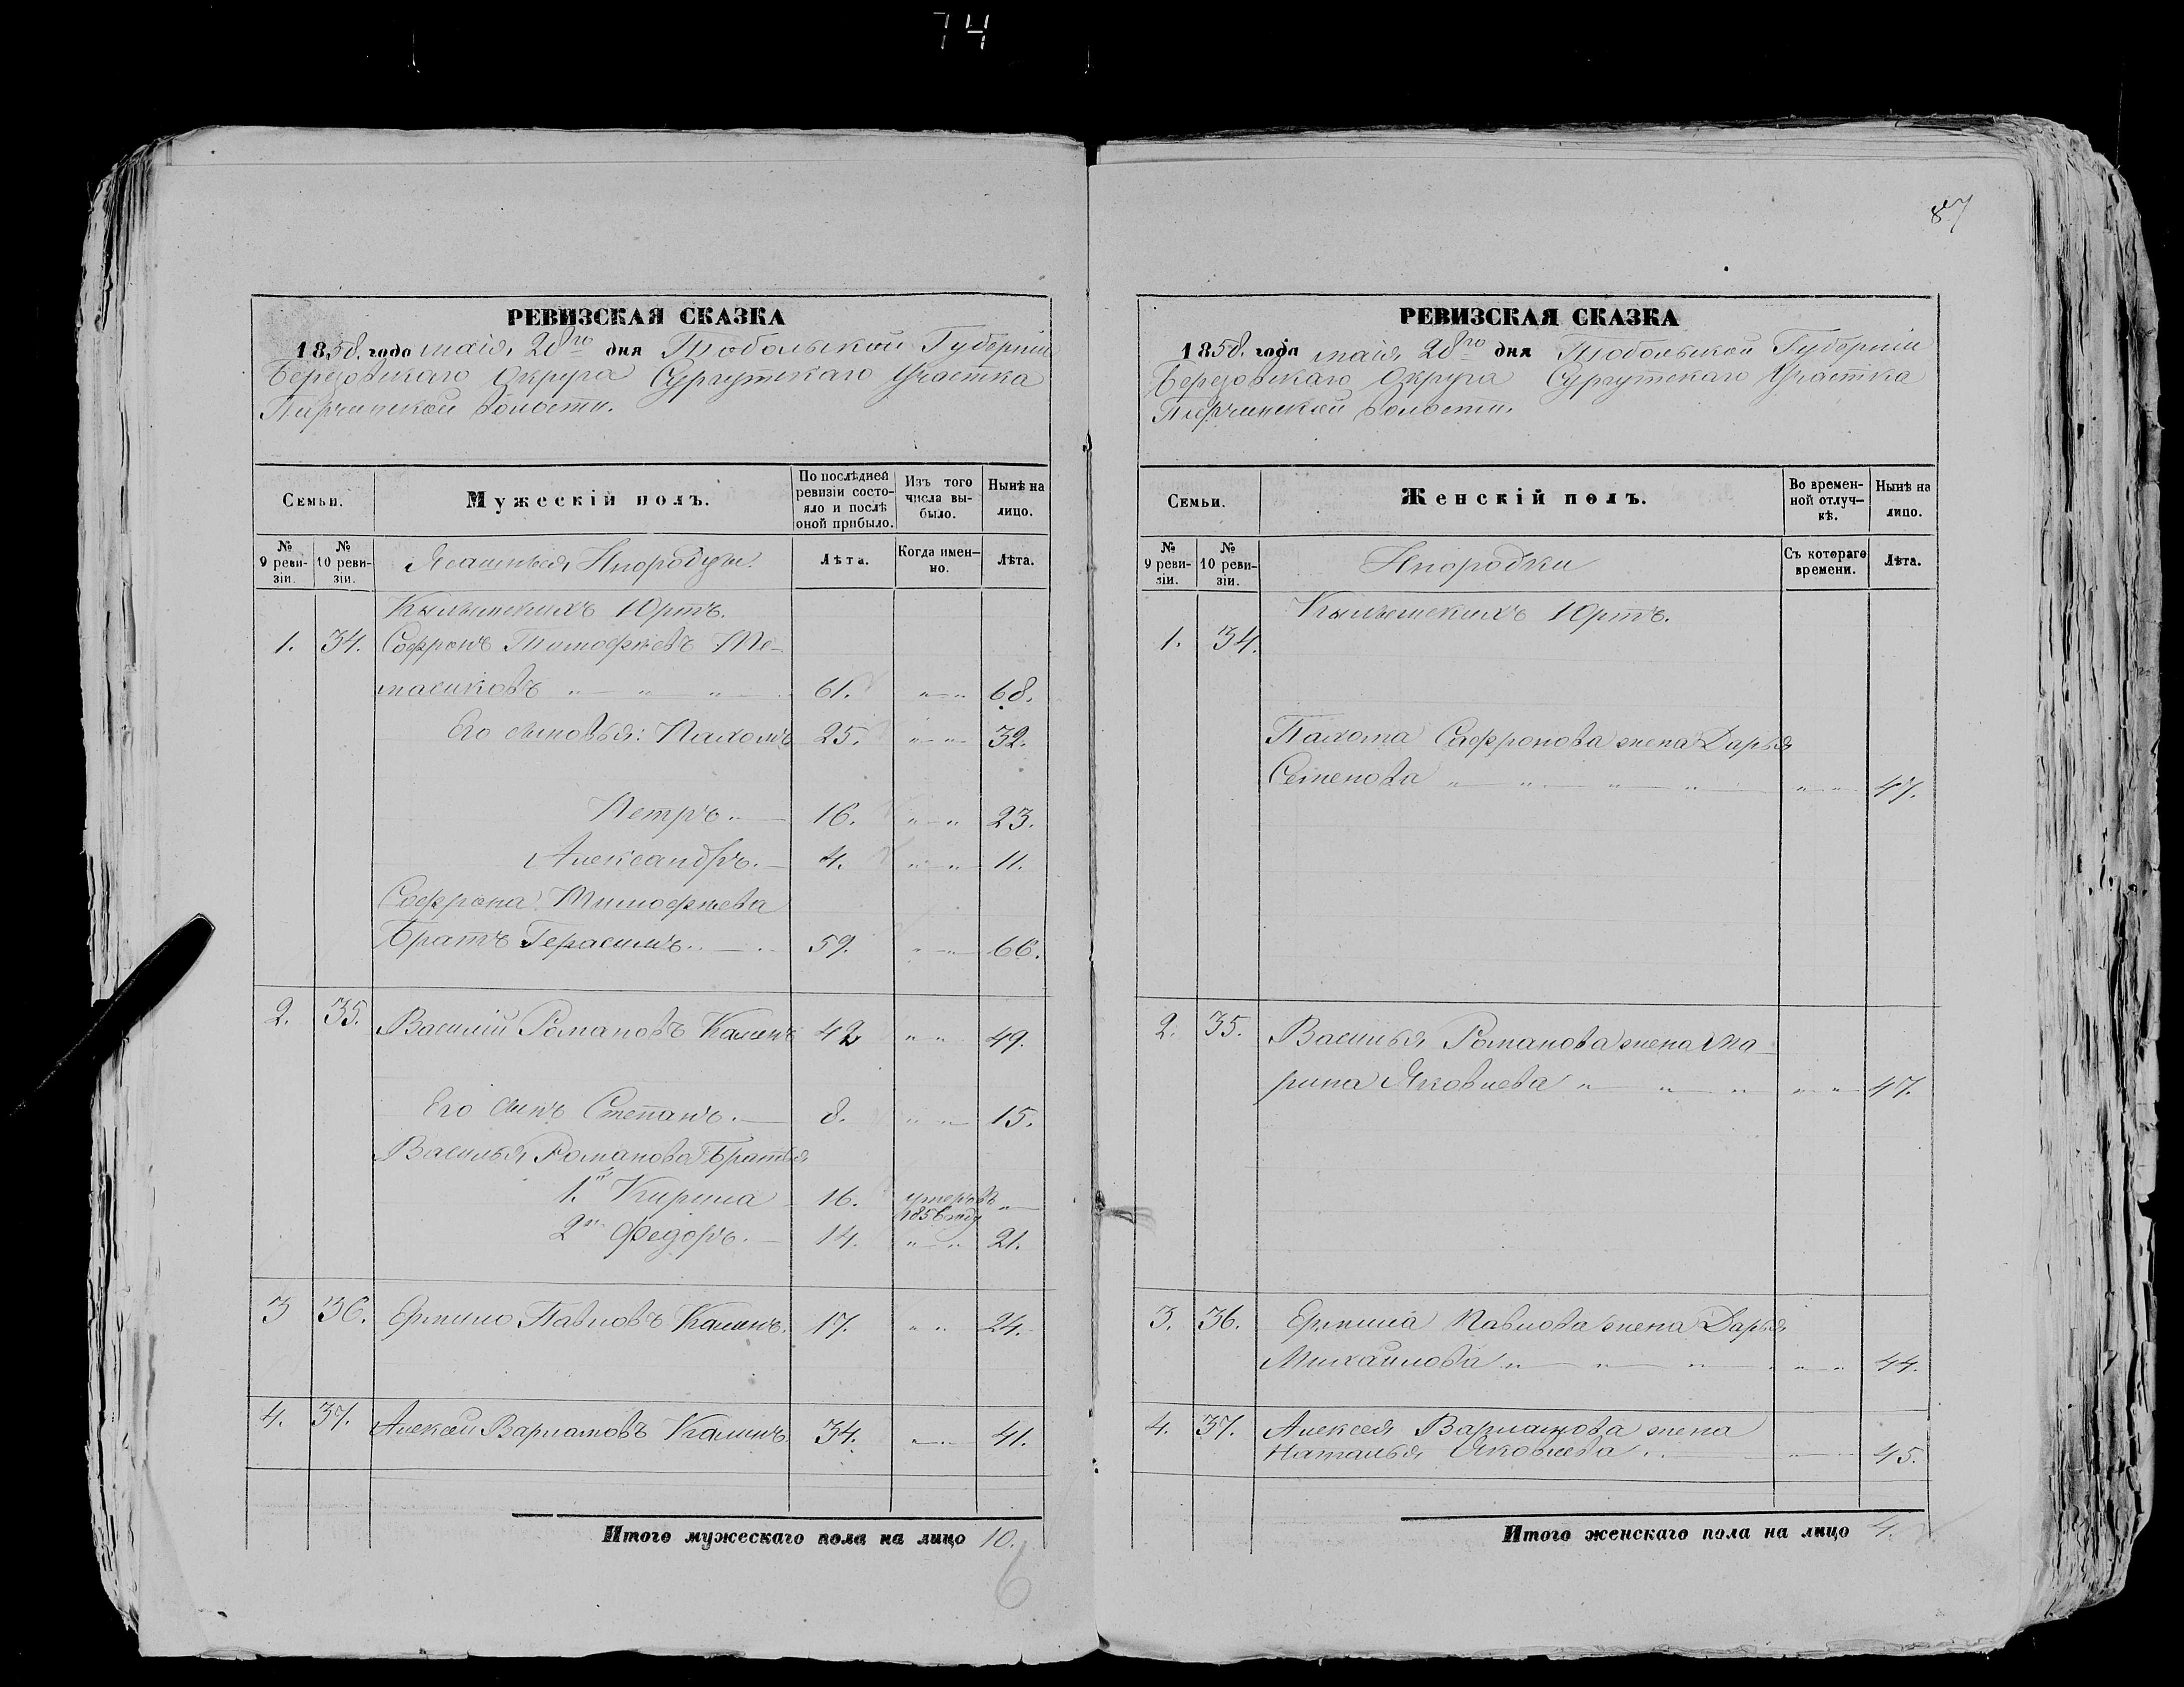 74
87
РЕВИЗСКАЯ СКАЗКА
1858. года маія, 28го дня Тобольской Губерніи
Березовскаго Округа Сургутскаго Участка
Пирчинской волости.
Семьи.
Мужескій полъ.
По послѣдней ревизіи состо-
яло и послѣ оной прибыло.
Изъ того числа вы-
было.
Нынѣ на лицо.
№ 9 реви-
зіи.
№ 10 реви-
зіи.
Ясашныя Инородцы.
Лѣта.
Когда имен-
но.
Лѣта.
Юртъ.
1. 34. Софронъ Тимофѣевъ Ме-
61. " " 68.
Его сыновья: Пахомъ 25. " " 32.
Петръ. 16. " " 23.
Александръ. 4. " " 11.
Софрона Тимофѣева
Братъ Герасимъ. 59. " " 66.
2. 35. Василій Романовъ Калинъ 42 " " 49.
Его сынъ Степанъ. 8. " " 15.
Василья Романова Братья
1й Кирила 16. умеръ въ 1856 году "
2й Федоръ. 14. " " 21.
3 36. Ермило Павловъ Калинъ. 17. " " 24.
4. 37. Алексѣй Варламовъ Калинъ 34. " 41.
Итого мужескаго пола на лицо 10.
6
РЕВИЗСКАЯ СКАЗКА
1858. года маія 28го дня Тобольской Губерніи
Березовскаго Округа Сургутскаго Участка
Пирчинской волости.
Семьи.
Женскій полъ.
Во времен-
ной отлуч-
кѣ.
Нынѣ на лицо.
№ 9 реви-
зіи.
№ 10 реви-
зіи.
Инородки
Съ котораго времени.
Лѣта.
Юртъ.
1. 34.
Пахома Софронова жена Дарья
Семенова " " " " " " 47.
2. 35. Василья Романова жена Ма-
рина Яковлева " " " " " 47.
3. 36. Ермила Павлова жена Дарья
Михайлова " " " " " 44.
4. 37. Алексея Варламова жена
Наталья Яковлева. " 45.
Итого женскаго пола на лицо 4.